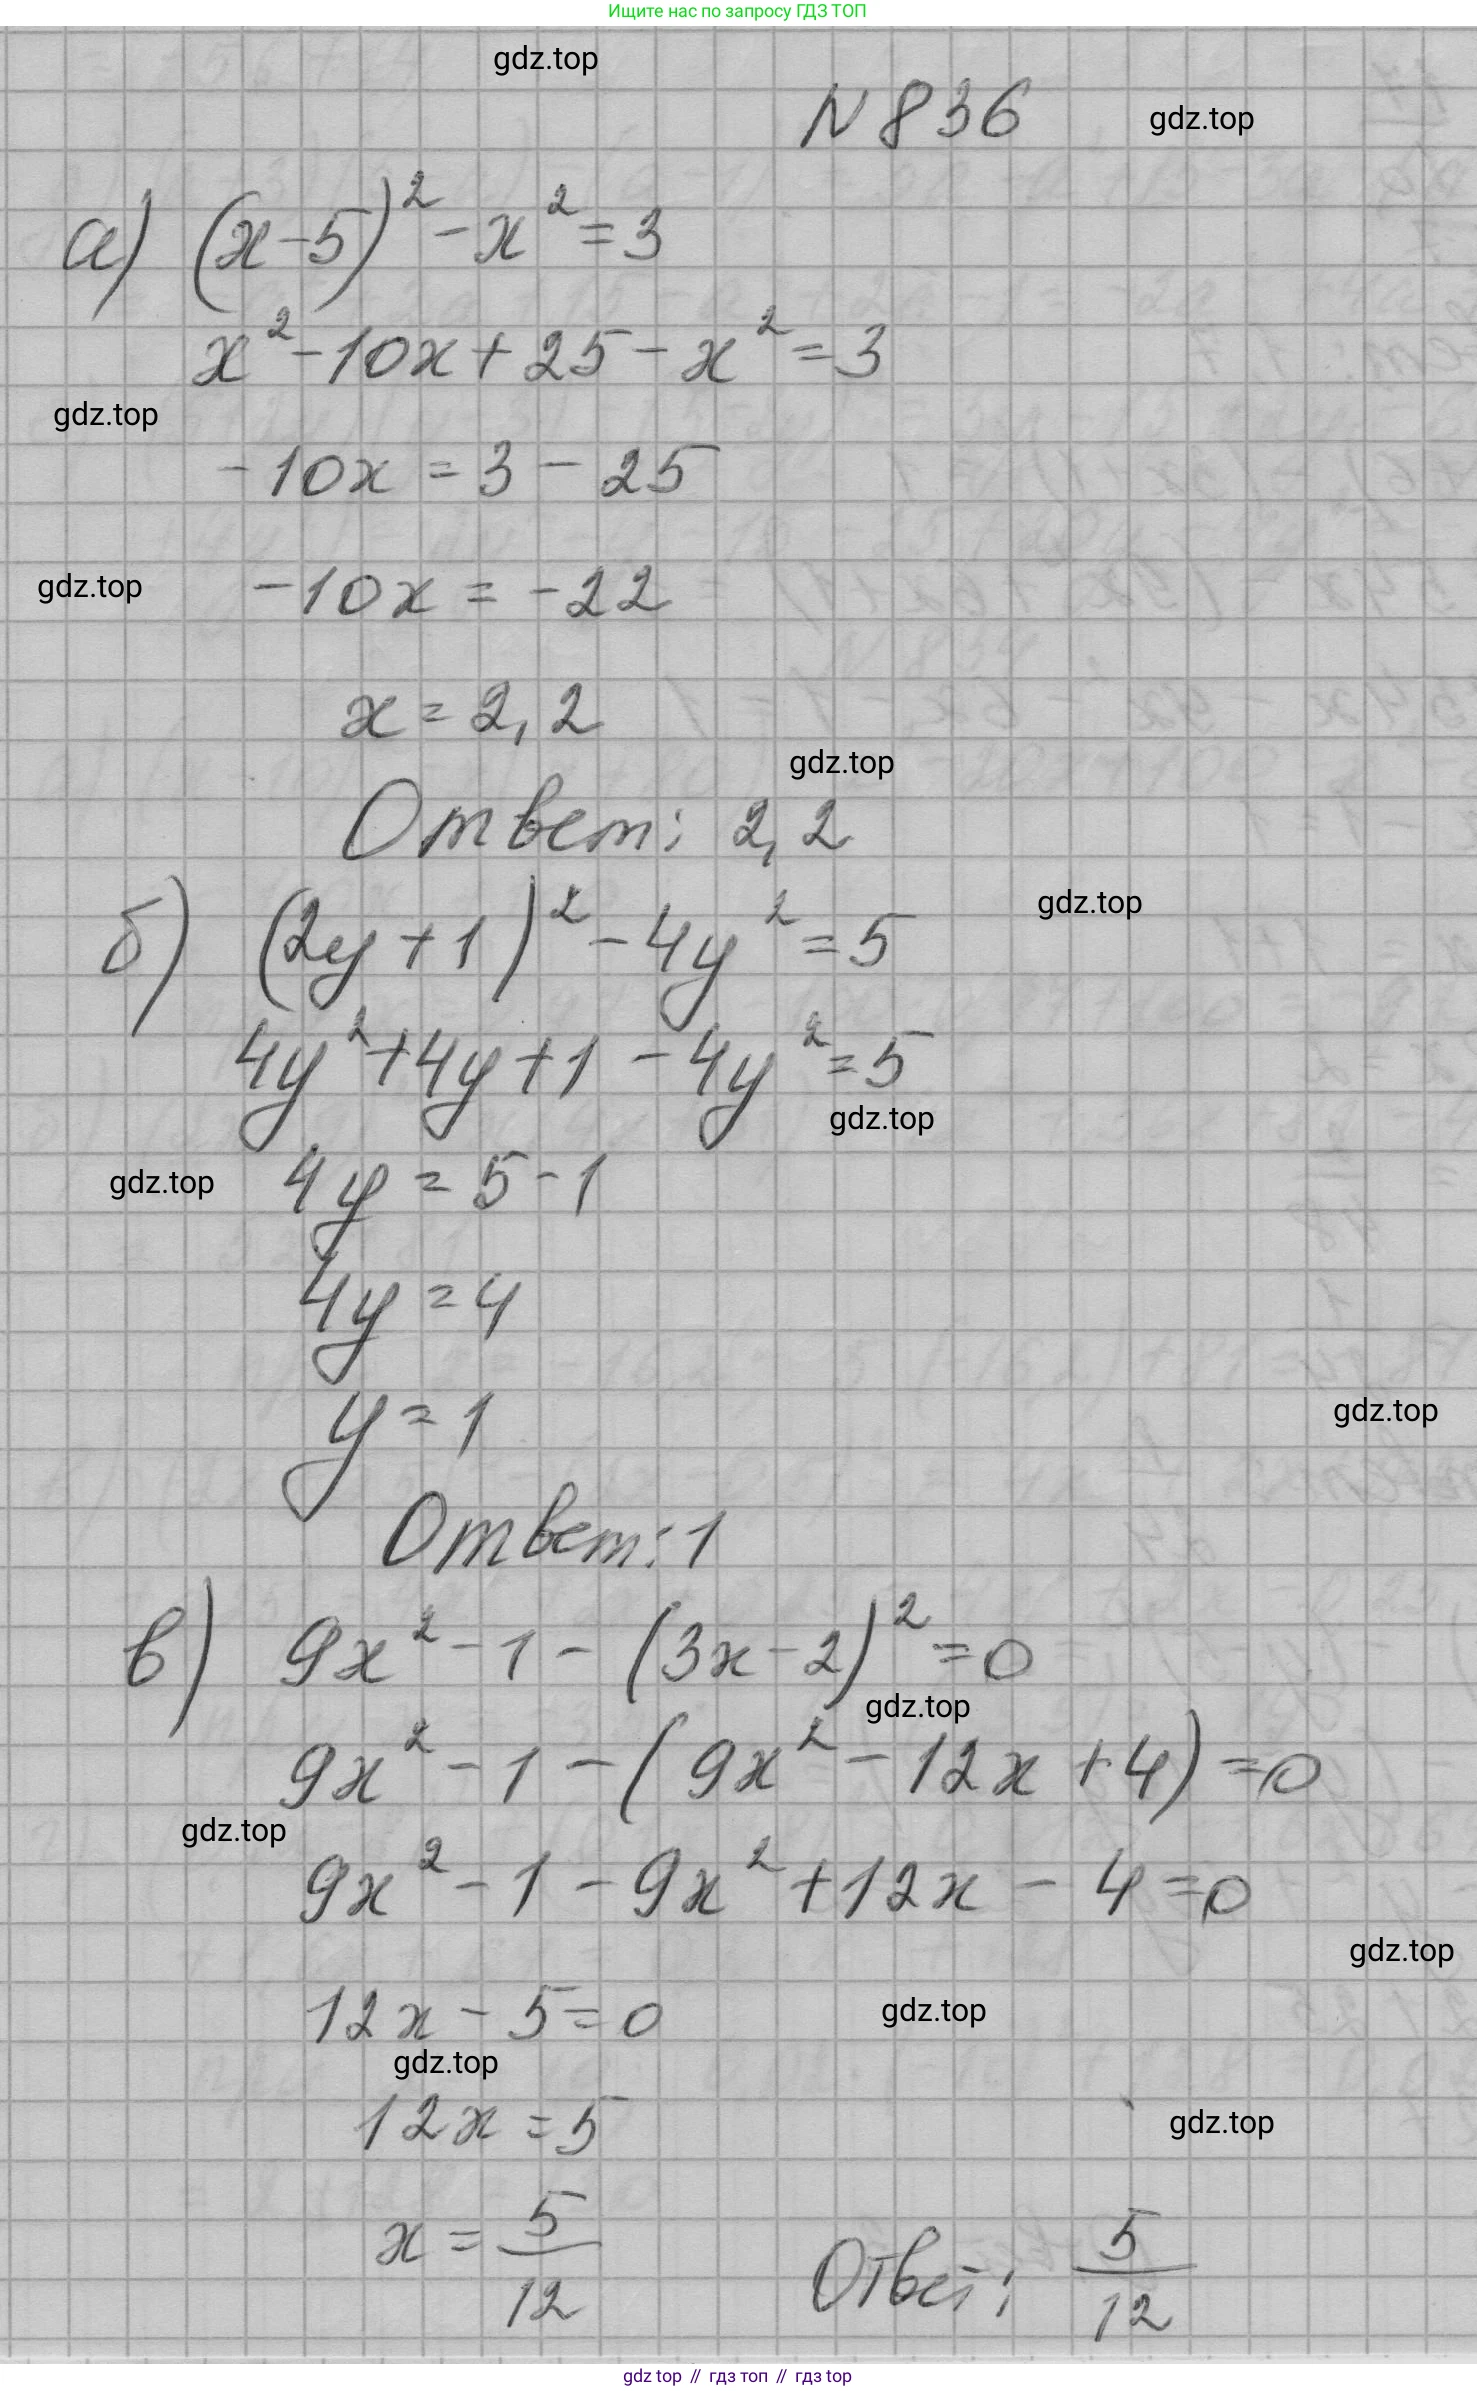 Ищите нас по запросу ГДЗ ТОП
gdz.top
N 836
gdz.top
а) (x-5)² - x² = 3
x² - 10x + 25 - x² = 3
gdz.top
-10x = 3 - 25
gdz.top
-10x = -22
x = 2,2
gdz.top
Ответ: 2,2
gdz.top
б) (2y + 1)² - 4y² = 5
4y² + 4y + 1 - 4y² = 5
gdz.top
gdz.top
4y = 5 - 1
4y = 4
gdz.top
y = 1
Ответ: 1
в) 9x² - 1 - (3x - 2)² = 0
gdz.top
9x² - 1 - (9x² - 12x + 4) = 0
gdz.top
9x² - 1 - 9x² + 12x - 4 = 0
gdz.top
12x - 5 = 0
gdz.top
gdz.top
12x = 5
gdz.top
x = 5/12 Ответ: 5/12
gdz top // гдз топ // гдз top